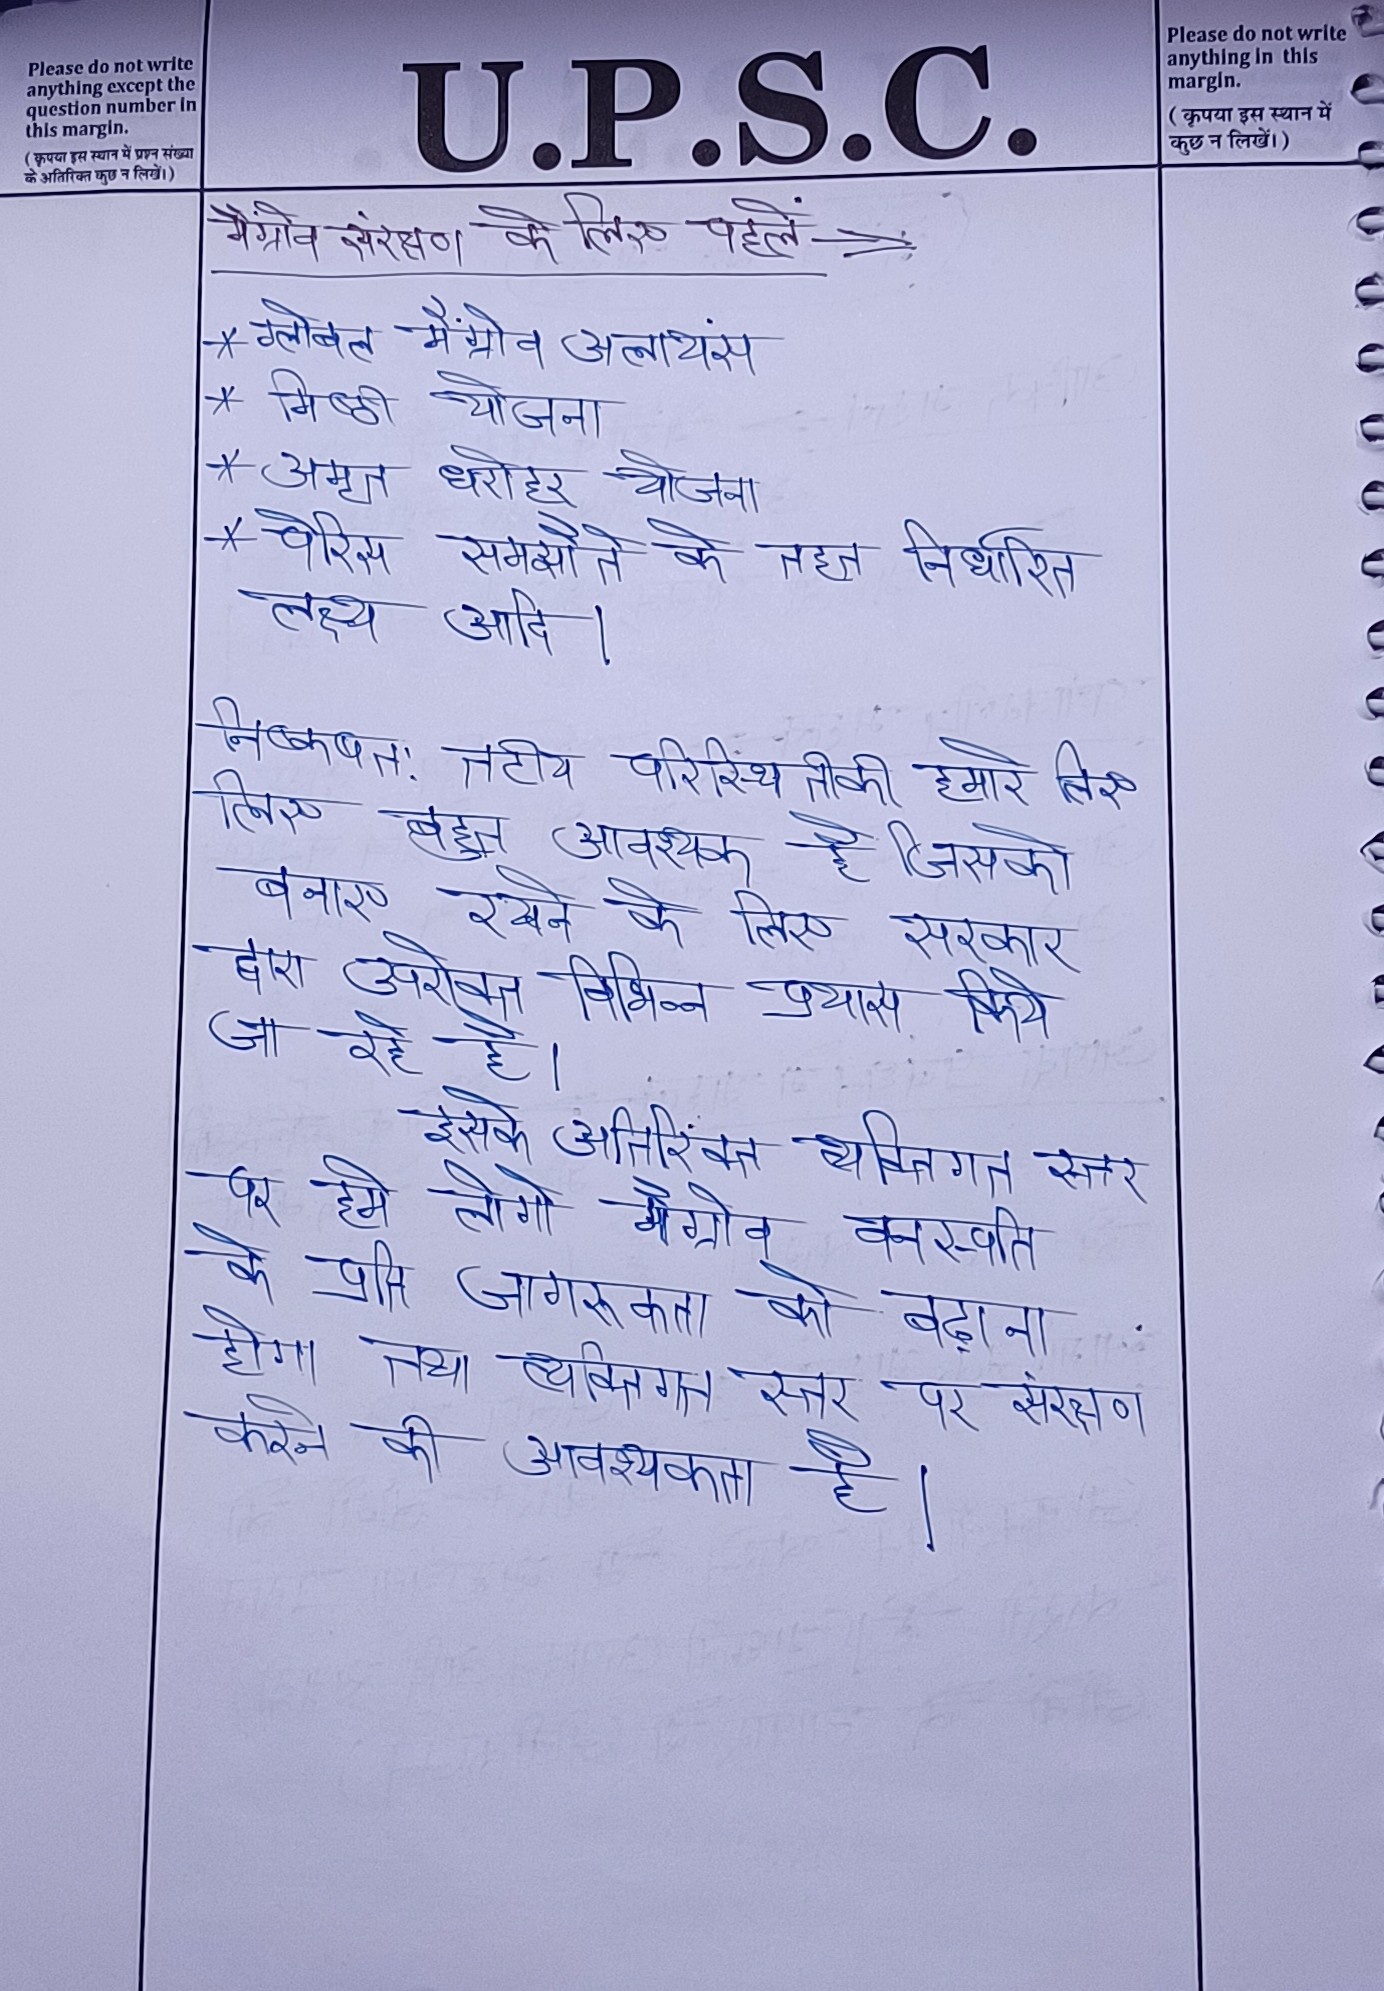 Please do not write
anything except the
question number in
this margin.
(कृपया इस स्थान में प्रश्न संख्या
के अतिरिक्त कुछ न लिखें।)
U.P.S.C.
Please do not write
anything in this
margin.
(कृपया इस स्थान में
कुछ न लिखें।)
मैंग्रोव संरक्षण के लिए पहलें →
* ग्लोबल मैंग्रोव अलायंस
* मिष्ठी योजना
* अमृत धरोहर योजना
* पेरिस समझौते के तहत निर्धारित
लक्ष्य आदि।
निष्कषत: तटीय परिस्थितीकी हमारे लिए
लिए बहुत आवश्यक है जिसको
बनाए रखने के लिए सरकार
द्वारा उपरोक्त विभिन्न प्रयास किये
जा रहे है।
इसके अतिरिक्त व्यक्तिगत स्तर
पर हमे लोगो मैंग्रोव वनस्पति
के प्रति जागरूकता को बढ़ाना
होगा तथा व्यक्तिगत स्तर पर संरक्षण
करने की आवश्यकता है।